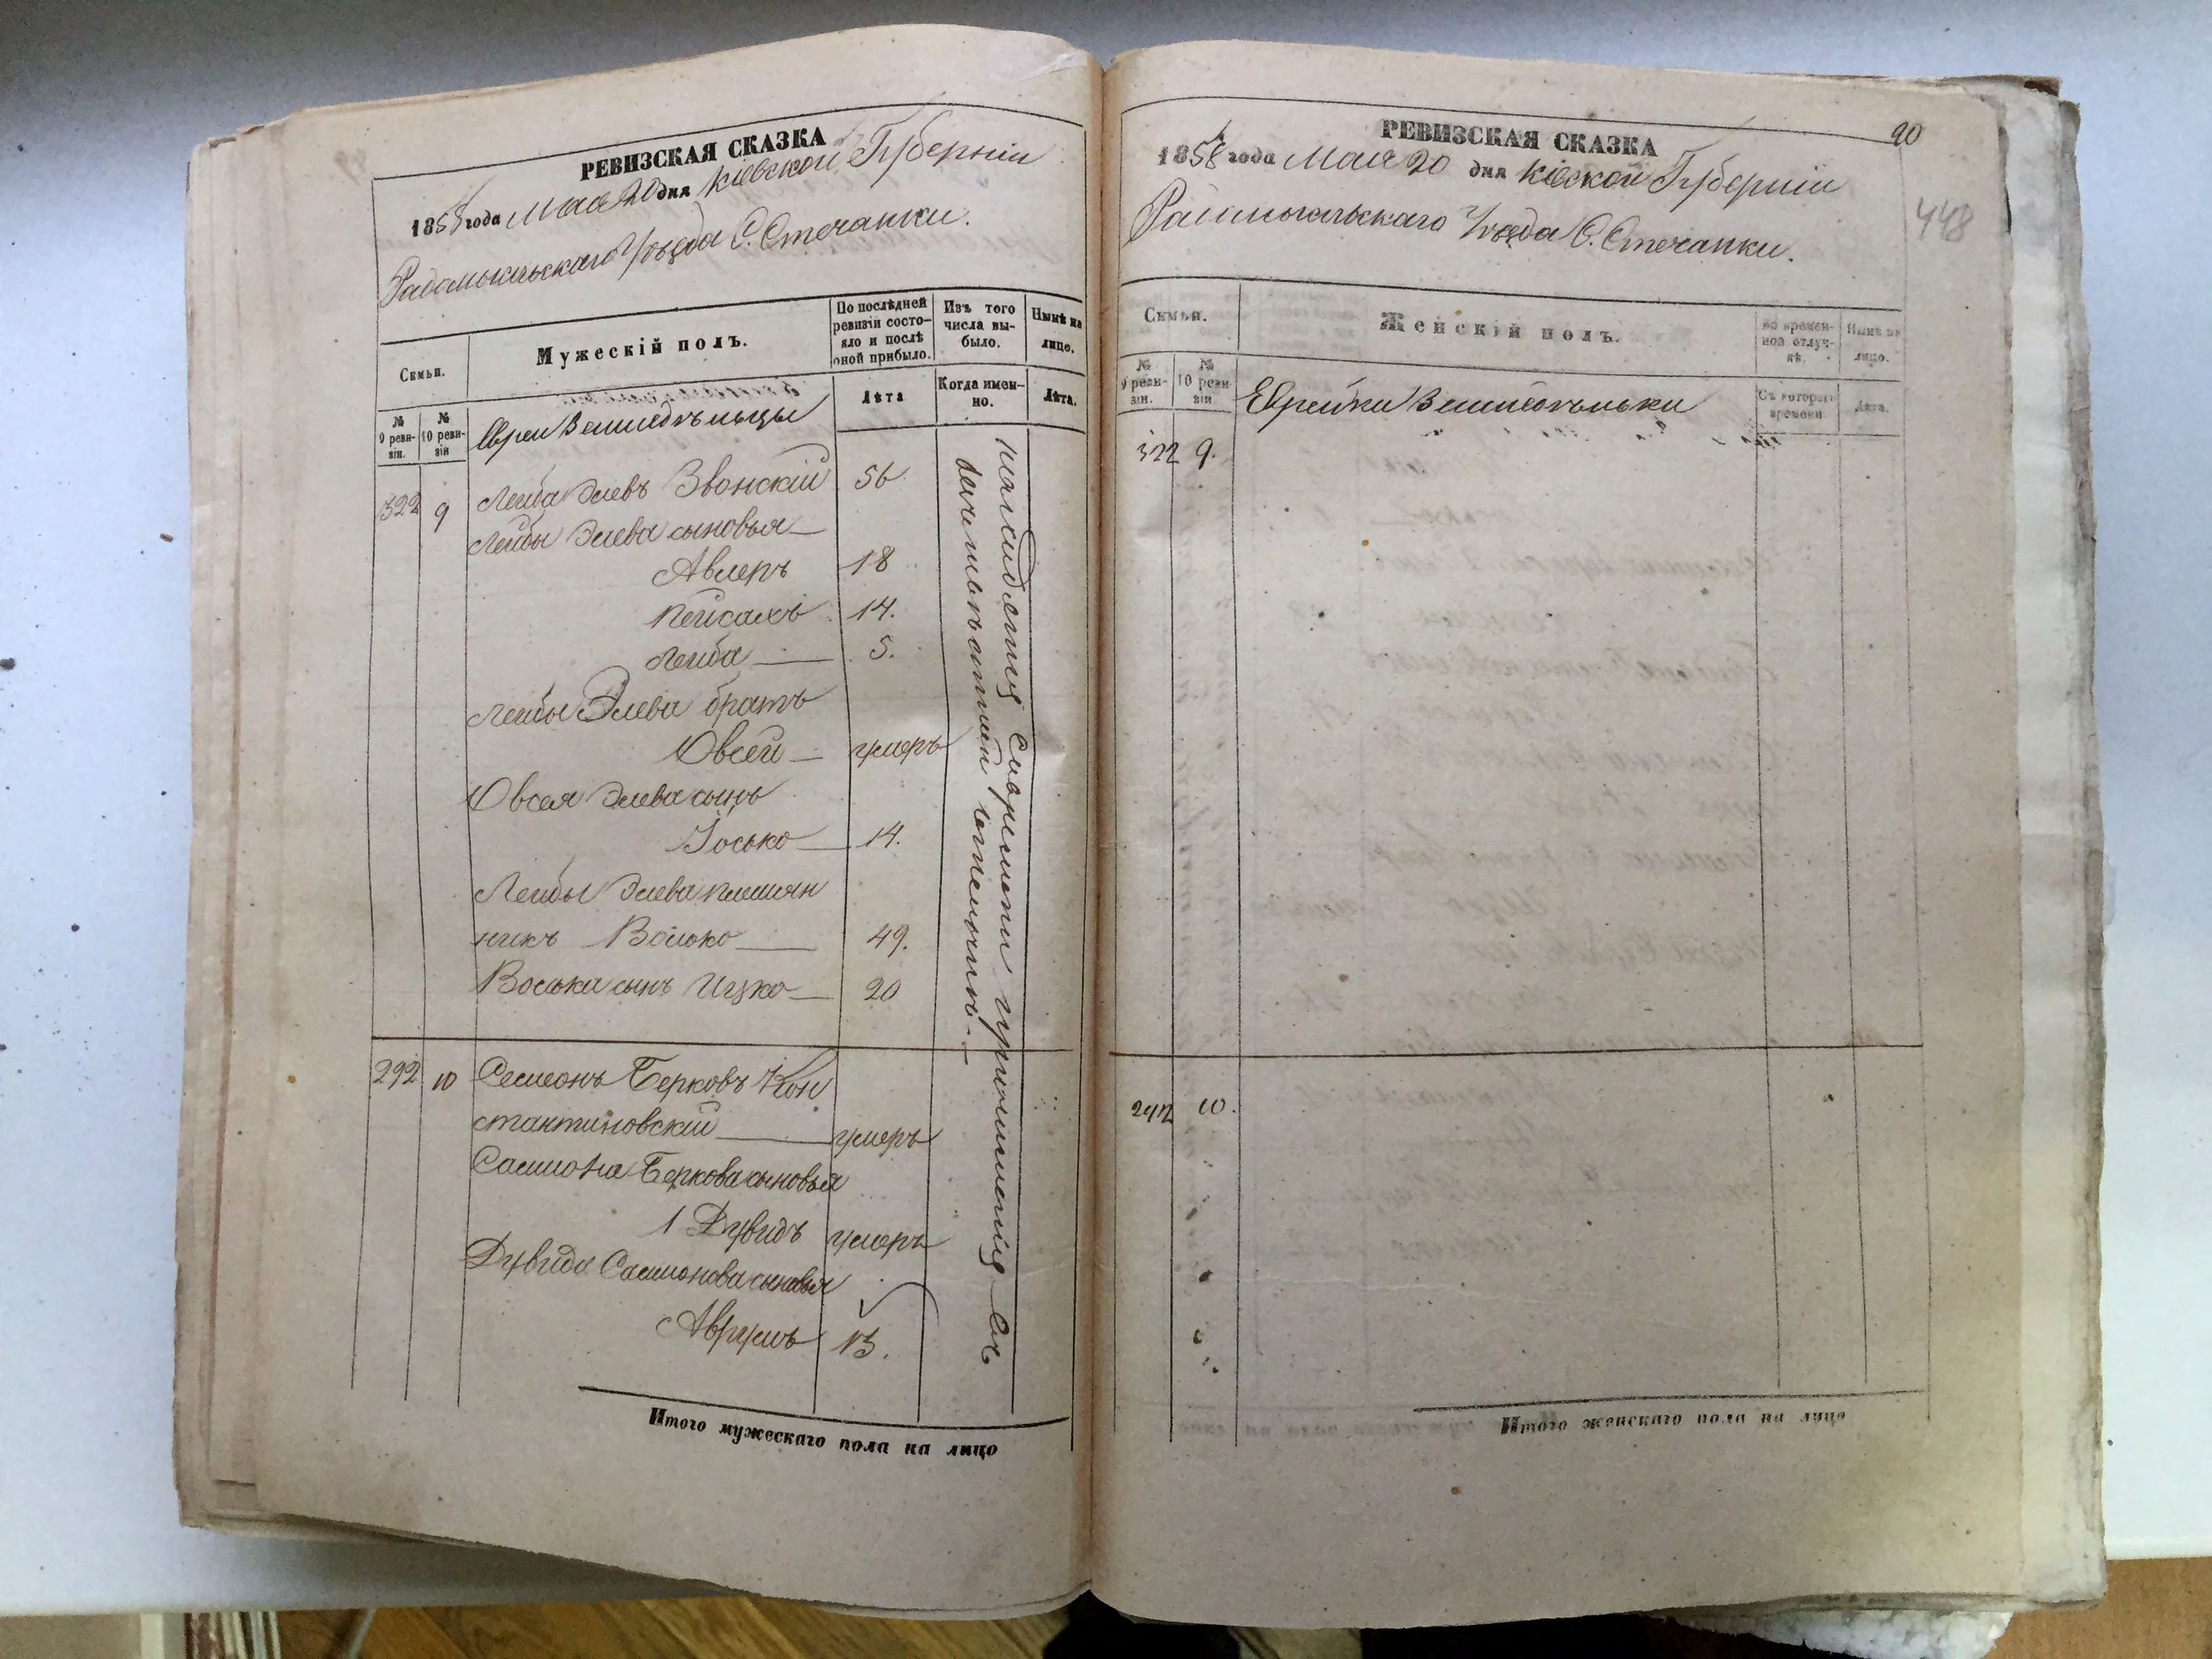 РЕВИЗСКАЯ СКАЗКА
1858 года Мая 20 дня Кіевской Губерніи
Радомысльскаго Уѣзда С. Стечанки.
Семьи.
Мужескій полъ.
По послѣдней ревизіи состояло и послѣ оной прибыло.
Изъ того числа выбыло.
Нынѣ на лице.
№ 9 ревизіи.
№ 10 ревизіи
Евреи Земледѣльцы
Лѣта
Когда именно.
Лѣта.
322 9 Лейба Элевъ Звонскій 56
Лейбы Элева сыновья
Авмеръ 18
Пейсахъ 14.
Лейба 5.
Лейбы Элева братъ
Овсей умеръ
Овсея Элева сынъ
Іосько 14.
Лейбы Элева племян
никъ Волько 49.
Волька сынъ Ицко 20
292 10 Семеонъ Берковъ Кон
стантиновскій умеръ
Самиона Беркова сыновья
1 Дувидъ умеръ
Дувида Самионова сыновья
Аврумъ 13.
Итого мужескаго пола на лицо
РЕВИЗСКАЯ СКАЗКА
20
1858 года Мая 20 дня Кіевской Губерніи
448
Радомысльскаго Уѣзда С. Стечанки.
Семьи.
Женскій полъ.
во временной отлучкѣ.
Нынѣ на лицо.
№ 9 ревизіи.
№ 10 ревизіи
Еврейки Земледѣльки
Съ котораго времени
Лѣта.
322 9.
292 10.
Итого женскаго пола на лицо